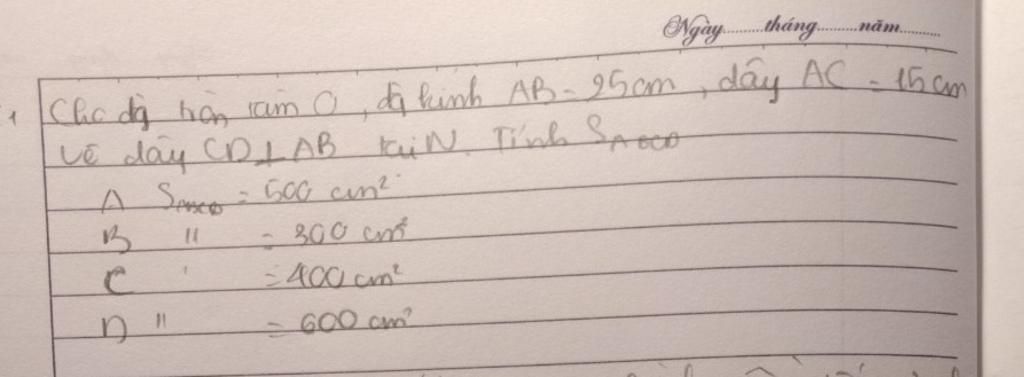 Ngày..........tháng..........năm..........
1 Cho đg tròn tâm O, đg kính AB = 25cm, dây AC = 15cm
Vẽ dây CD⊥AB tại N. Tính S
A S = 500 cm²
B " = 300 cm²
C ' = 400 cm²
D " = 600 cm²